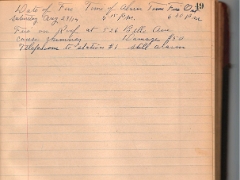 19
Date of Fire Time of Alarm Time Fire Out
Saturday Aug 29 5 15 P.M. 6 P.M.
Fire on Roof at 526 Belle Ave
Cause chimney Damage $50
Telephone to station #1 still alarm